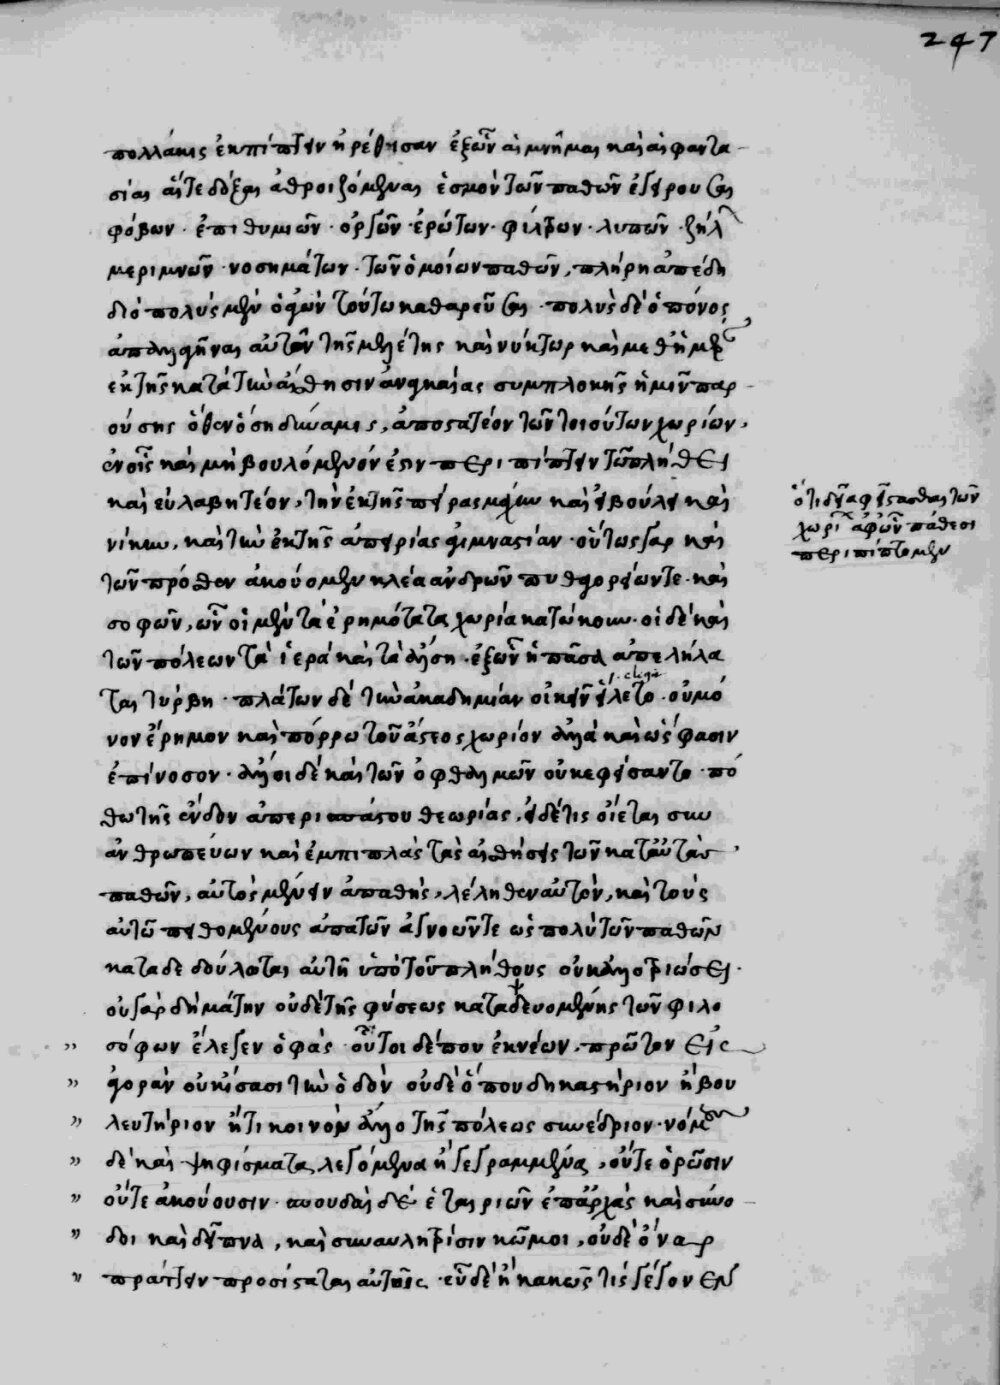 247
πολλάκις ἐκπίπτειν ἠρέθισαν ἐξ ὧν αἱ μνῆμαι καὶ αἱ φαντα
σίαι αἵ τε δόξαι ἀθροιζόμεναι ἑσμὸν τῶν παθῶν ἐγείρουσαι
φόβων · ἐπιθυμιῶν · ὀργῶν · ἐρώτων · φίλτρων · λυπῶν · ζήλων
μεριμνῶν · νοσημάτων · τῶν ὁμοίων παθῶν, πλήρη ἀπέδη
διὸ πολὺς μὲν ἀγὼν τούτω καθαρεῦσαι · πολὺς δὲ ὁ πόνος
ἀπαλλαγῆναι αὐτῶν τῆς μελέτης καὶ νύκτωρ καὶ μεθ' ἡμέραν
ἐκ τῆς κατὰ τὴν αἴσθησιν ἀναγκαίας συμπλοκῆς ἡμῖν παρ
ούσης ὅθεν ὅση δύναμις, ἀποστατέον τῶν τοιούτων χωρίων,
ἐν οἷς καὶ μὴ βουλόμενόν ἐστιν περιπίπτειν τῶ πλήθει
καὶ εὐλαβητέον, τὴν ἐκ τῆς πείρας μάχην καὶ εἰ βούλει καὶ
νίκην, καὶ τὴν ἐκ τῆς ἀπειρίας γυμνασίαν · οὕτως γὰρ καὶ
τῶν πρόσθεν ἀκούομεν κλέα ἀνδρῶν πυθαγορείων τε · καὶ
σοφῶν, ὧν οἱ μὲν τὰ ἐρημότατα χωρία κατώκουν · οἱ δὲ καὶ
τῶν πόλεων τὰ ἱερὰ καὶ τὰ ἄλση · ἐξ ὧν ἡ πᾶσα ἀπελήλα
ται τύρβη · πλάτων δὲ τὴν ἀκαδημίαν οἰκεῖν εἵλετο · οὐ μό
νον ἔρημον καὶ πόρρω τοῦ ἄστεος χωρίον ἀλλὰ καὶ ὥς φασιν
ἐπίνοσον · ἄλλοι δὲ καὶ τῶν ὀφθαλμῶν οὐκ ἐφείσαντο · πό
θω τῆς ἔνδον ἀπερισπάστου θεωρίας, εἰ δέ τις οἴεται συν
ανθρωπεύων καὶ ἐμπιπλὰς τὰς αἰσθήσεις τῶν κατ' αὐτὰς
παθῶν, αὐτὸς μένειν ἀπαθὴς, λέληθεν αὑτὸν, καὶ τοὺς
αὐτῶ πειθομένους ἀπατῶν ἀγνοῶν τε ὡς πολὺ τῶν παθῶν
καταδεδούλωται αὐτῆ ὑπὸ τοῦ πλήθους οὐκ ἀλλοτριώσει ·
οὐ γὰρ δὴ μάτην οὐδὲ τῆς φύσεως καταδευομένης τῶν φιλο
σόφων ἔλεγεν ὁ φὰς · οὗτοι δέ που ἐκ νέων, πρῶτον εἰς
ἀγορὰν οὐκ ἴσασι τὴν ὁδὸν οὐδὲ ὅπου δικαστήριον ἢ βου
λευτήριον ἤ τι κοινὸν ἄλλο τῆς πόλεως συνέδριον · νόμους
δὲ καὶ ψηφίσματα λεγόμενα ἢ γεγραμμένα, οὔτε ὁρῶσιν
οὔτε ἀκούουσιν · σπουδαὶ δὲ ἑταιριῶν ἐπ' ἀρχὰς καὶ σύνο
δοι καὶ δεῖπνα, καὶ σὺν αὐλητρίσιν κῶμοι, οὐδὲ ὄναρ
πράττειν προσίσταται αὐτοῖς · εὖ δὲ ἢ κακῶς τίς γέγονεν
ὅτι δεῖ ἀφίστασθαι τῶν
χωρίων ἀφ' ὧν πάθεσι
περιπίπτομεν